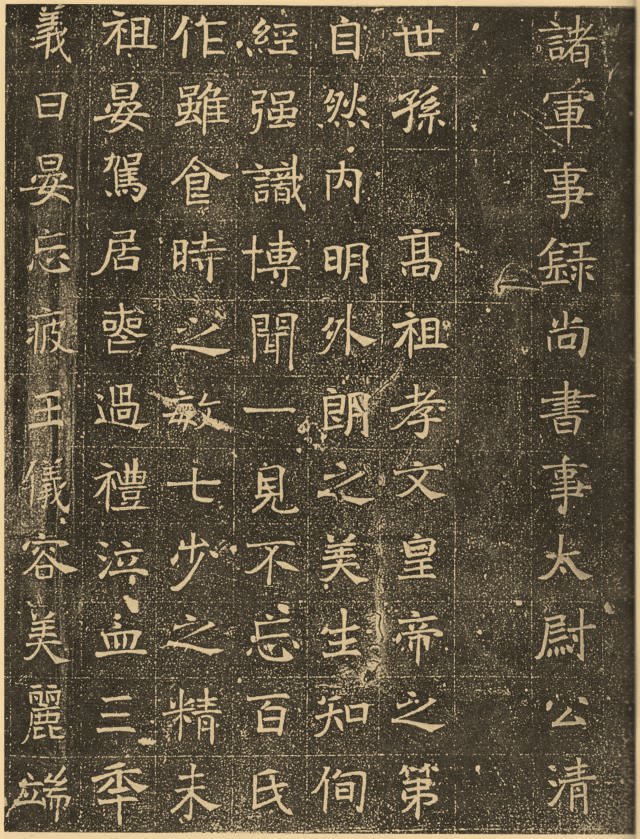 諸軍事録尚書事太尉公清
世孫 髙祖孝文皇帝之第
自然内明外朗之美生知徇
經强識博聞一見不忘百氏
作雖食時之敏七步之精未
祖晏駕居喪過禮泣血三年
義日晏忘疲王儀容美麗端